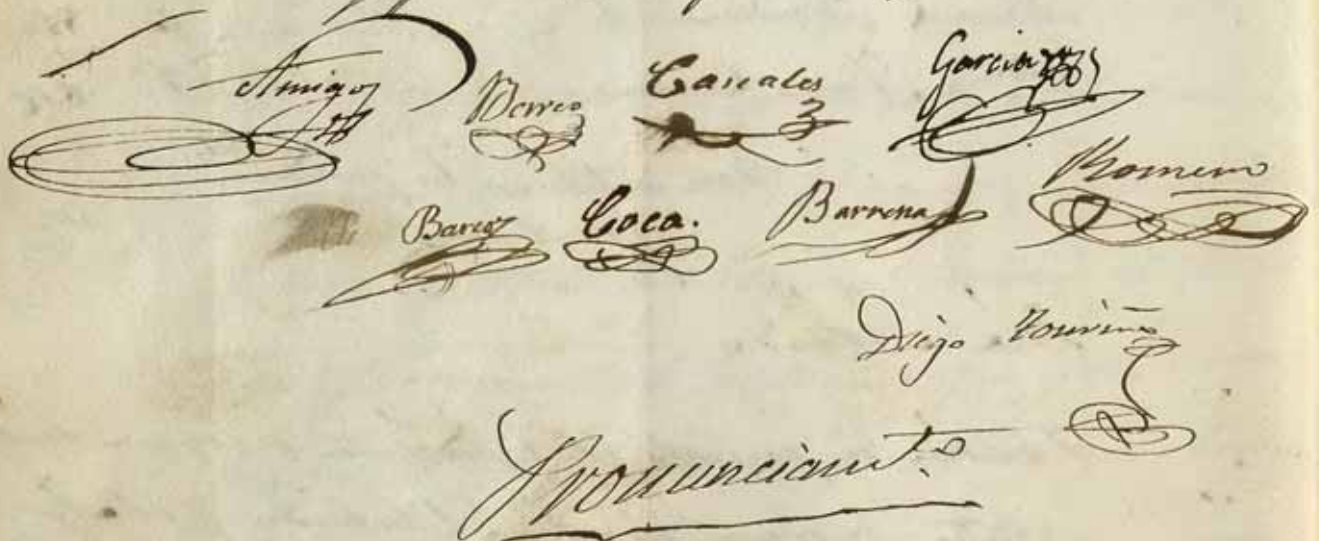 Amigo Berreo Cascales Garcia
Barco Coca. Barrena Romero
Diego Touriño
Pronunciamt.º